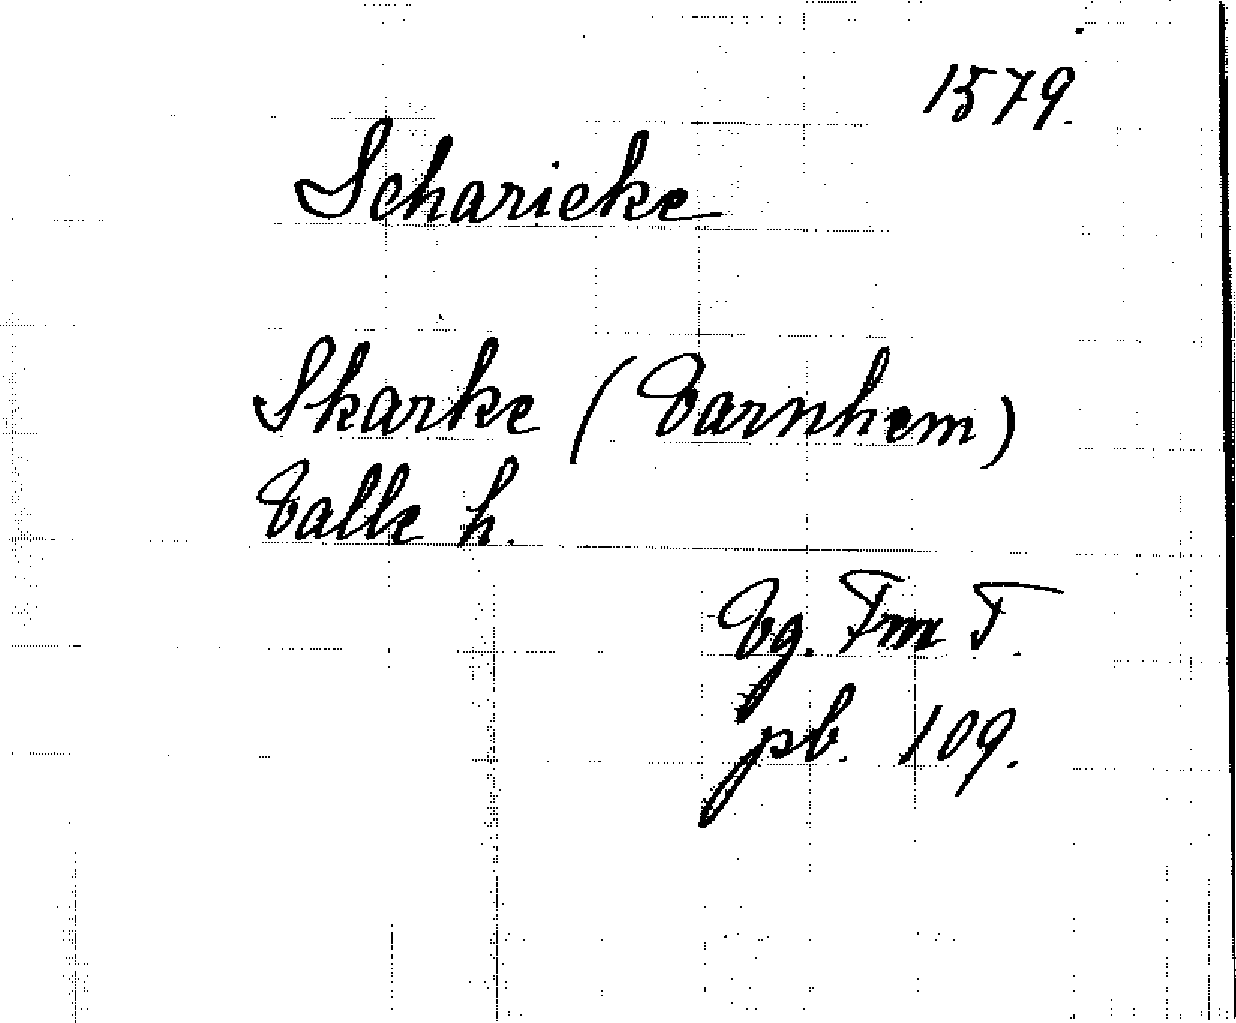 1579.
Scharieke
Skarke (Varnhem)
Valle h.
Vg. Fm T.
pb. 109.